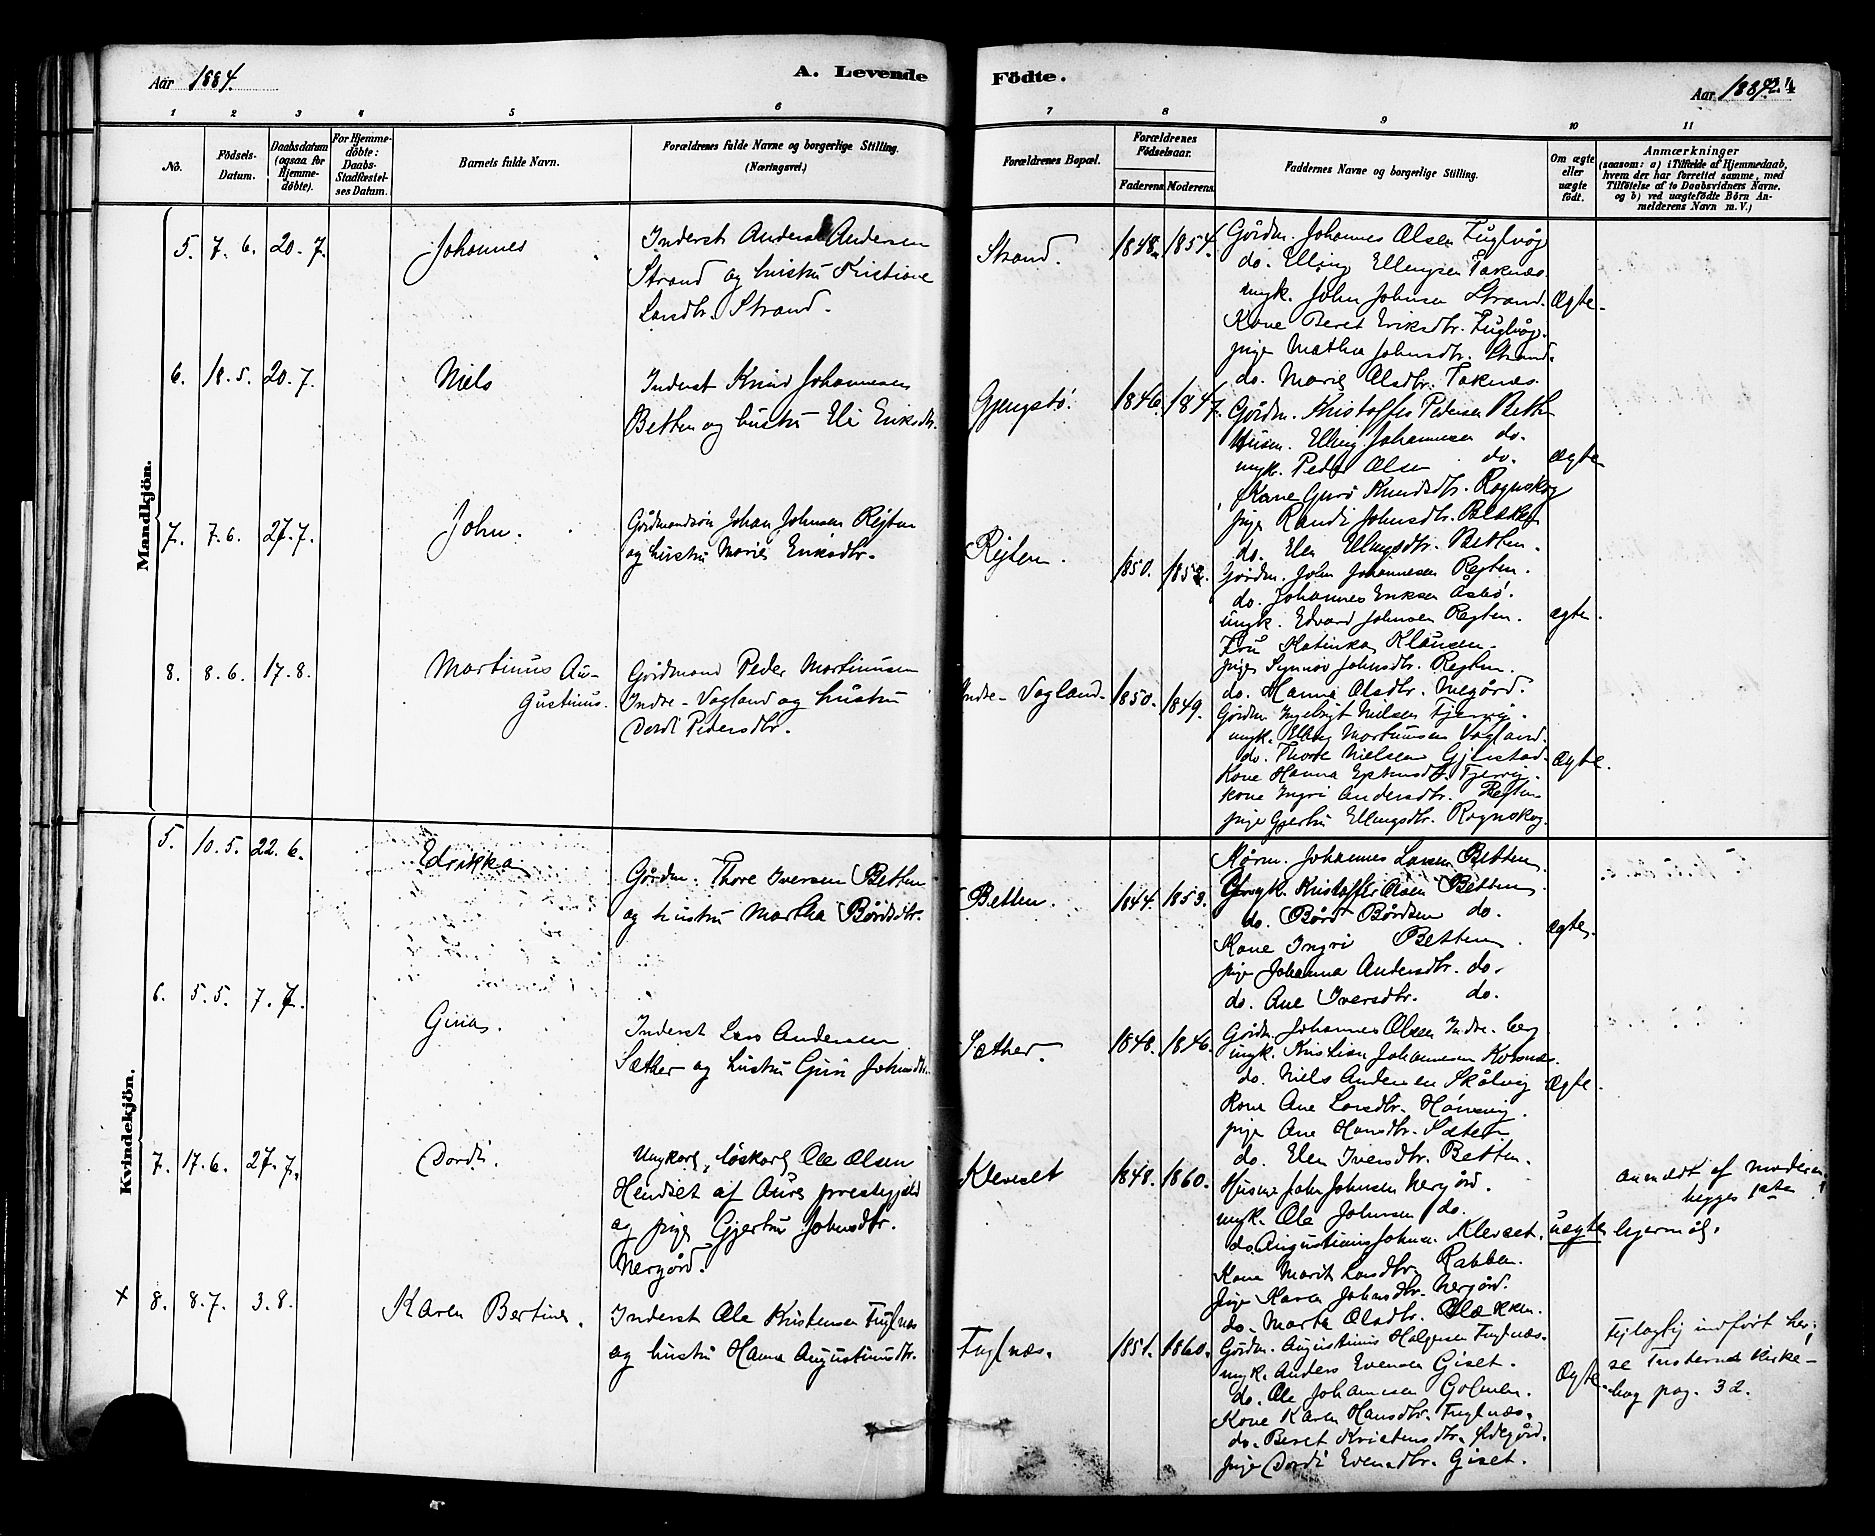 Aar 1884.
A. Levende Födte.
Aar 1884 24
1 2 3 4 5 6 7 8 9 10 11
No.
Födsels-Datum.
Daabsdatum (ogsaa for Hjemme-döbte).
For Hjemme-döbte: Daabs-Stadfæstel-ses Datum.
Barnets fulde Navn.
Forældrenes fulde Navne og borgerlige Stilling. (Næringsvei.)
Forældrenes Bopæl.
Forældrenes Födselsaar.
Faderens Moderens
Faddernes Navne og borgerlige Stilling.
Om ægte eller uægte födt.
Anmærkninger
(saasom: a) i Tilfælde af Hjemmedaab, hvem der har forrettet samme, med Tilföielse af to Daabsvidners Navne. og b) ved uægtefödte Börn An-melderens Navn m. V.)
Mandkjön.
5. 7. 6. 20. 7. Johannes
Inderst Anders Andersen
Strand og hustru Kristiane
Larsdtr. Strand.
Strand. 1848. 1854.
Gårdm. Johannes Olsen Fuglvåg
do. Elling Ellingsen Taknæs
ungk. John Johnsen Strand.
Kone Beret Eriksdtr. Fuglvåg.
pige Martha Johnsdtr. Strand.
do. Marit Olsdtr. Taknæs.
Ægte.
6. 18. 5. 20. 7. Niels
Inderst Knud Johannesen
Betten og hustru Eli Eriksdtr.
Gjengstö. 1846. 1847.
Gårdm. Kristoffer Pedersen Betten
Husm. Elling Johannesen do.
ungk. Peder Olsen do.
Kone Guro Knudsdtr. Rognskog
pige Randi Johnsdtr.
do. Elen Ellingsdtr. Betten.
ægte
7. 7. 6. 27. 7. John.
Gårdmandssön Johan Johnsen Rejten
og hustru Marit Eriksdtr.
Rejten. 1850. 1852.
Gårdm. John Johannesen Rejten.
do. Johannes Eriksen Åsbö.
ungk. Edvard Johnsen Rejten.
Fru Katinka Klausen.
pige Synnöv Johnsdtr. Rejten.
do. Hanna Olsdtr. Negård.
ægte.
8. 8. 6. 17. 8. Martinus Au-
gustinus.
Gårdmand Peder Martinusen
Indre-Vagland og hustru
Dordi Pedersdtr.
Indre-Vagland. 1850. 1849.
Gårdm. Ingebrigt Nielsen Tjervåg.
ungk. Elling Martinusen Vagland.
do. Thore Nielsen Gjelstad.
Kone Hanna Tjervåg.
Kone Ingri Andersdtr. Rejten
pige Gjertru Ellingsdtr. Rognskog.
Ægte.
Kvindekjön.
5. 10. 5. 22. 6. Edrikka
Gårdm. Thore Iversen Betten
og hustru Martha Bårdsdtr.
Betten. 1844. 1853.
Kårm. Johannes Larsen Betten
Ungk. Kristoffer Olsen Betten
do. Bård Bårdsen do.
Kone Ingri Betten.
pige Johanna Andersdtr. do.
do. Ane Iversdtr. do.
ægte.
6. 5. 5. 7. 7. Gina.
Inderst Lars Andersen
Sæther og hustru Guri Johnsdtr.
Sæther. 1848. 1846.
Gårdm. Johannes Olsen Indre-berg
ungk. Kristian Johannesen Korsnæs.
do. Niels Andersen Skålvig
Kone Ane Larsdtr. Hönsvig.
pige Ane Hansdtr. Sæter
do. Elen Iversdtr. Betten.
Ægte.
7. 17. 6. 27. 7. Dordi.
Ungkarl, löskarl, Ole Olsen
Hendset af Aure prestegjeld
og pige Gjertru Johnsdtr.
Nergård.
Klevset 1848. 1860.
Husm. John Johnsen Nergård.
ungk. Ole Johnsen do.
do. Augustinus Johnsen Klevset.
Kone Marit Larsdtr. Rabben.
Pige Karen Johnsdtr. Nergård.
do. Marta Olsdtr. Blækken.
uægte
anmeldt af moderen,
begges 1ste
lejermål.
x 8. 8. 7. 3. 8. Karen Bertine.
Inderst Ole Kristensen Fuglnæs
og hustru Hanna Augustinusdtr.
Fuglnæs. 1851. 1860.
Gårdm. Augustinus Halgesen Fuglnæs.
ungk. Anders Evensen Giset.
do. Ole Johannesen Golmen.
Kone Karen Hansdtr. Fuglnæs.
do. Beret Kristensdtr. Ødegård.
pige Dordi Evensdtr. Giset.
Ægte.
Fejlagtig indført her;
se Tusternes kirke-
bog pag. 32.